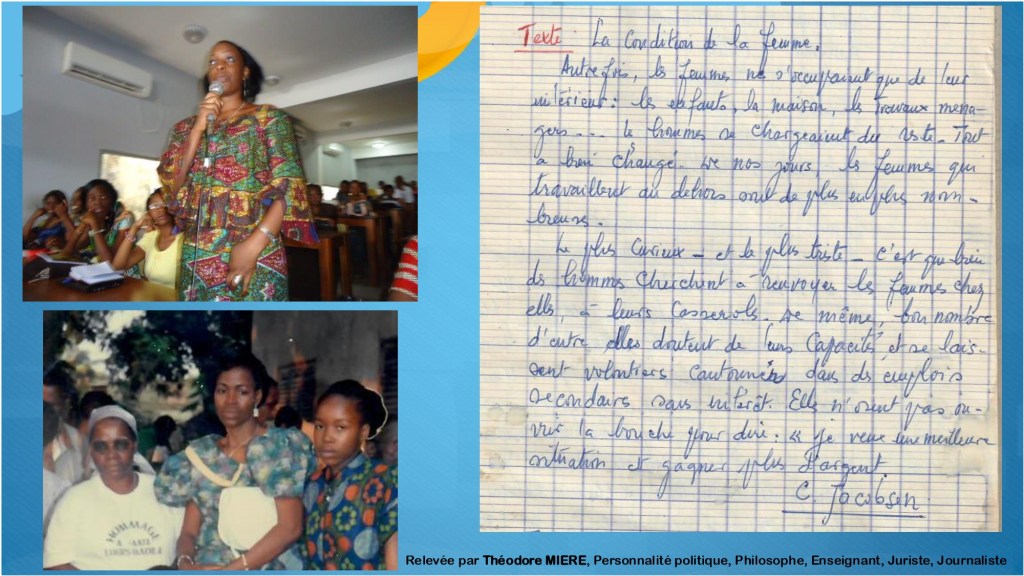 Texte : La condition de la femme.
Autrefois, les femmes ne s'occupaient que de leur
intérieur : les enfants, la maison, les travaux ména-
gers... les hommes se chargeaient du reste - Tout
a bien changé. De nos jours, les femmes qui
travaillent au dehors sont de plus en plus nom-
breuses.
Le plus curieux - et le plus triste - c'est que bien
des hommes cherchent à renvoyer les femmes chez
elles, à leurs casseroles. De même, bon nombre
d'entre elles doutent de leurs capacités et se lais-
sent volontiers cantonner dans des emplois
secondaires sans intérêt. Elles n'osent pas ou-
vrir la bouche pour dire : « je veux une meilleure
situation et gagner plus d'argent.
C. Jacobsen
HOMMAGE
Relevée par Théodore MIERE, Personnalité politique, Philosophe, Enseignant, Juriste, Journaliste